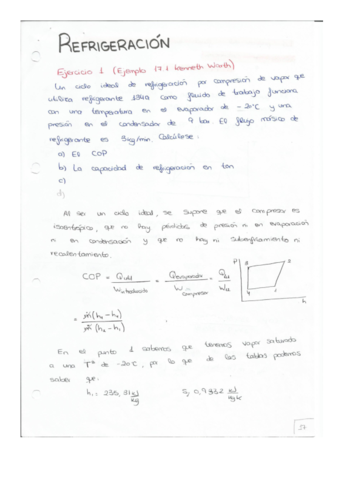 REFRIGERACIÓN
Ejercicio 1 (Ejemplo 17.1 Kenneth Wark)
Un ciclo ideal de refrigeración por compresión de vapor que
utiliza refrigerante 134a como fluido de trabajo funciona
con una temperatura en el evaporador de -20ºC y una
presión en el condensador de 9 bar. El flujo másico de
refrigerante es 3kg/min. Calcúlese:
a) El COP
b) La capacidad de refrigeración en ton
c)
d)
Al ser un ciclo ideal, se supone que el compresor es
isentrópico, que no hay pérdidas de presión ni en evaporación
ni en condensación y que no hay ni subenfriamiento ni
recalentamiento.
COP = Qútil / W = Qevaporador / W compresor = Q41 / W12
P 3 2 4 1 h
= ṁ(h1 - h4) / ṁ(h2 - h1)
En el punto 1 sabemos que tenemos vapor saturado
a una Tª de -20ºC, por lo que de las tablas podemos
saber que:
h1 = 235,31 kJ/kg S1 0,9332 kJ/kg K
57